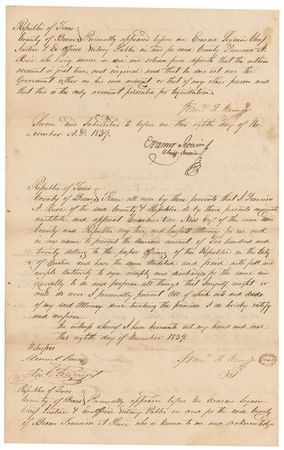 Republic of Texas
County of Bexar } Personally appeared before me Erasmo Seguin Chief
Justice & Ex Officio Notary Public in and for said County Francisco A.
Ruiz who being sworn in due and solemn form deposeth that the within
account is just true and original and that he does not owe the
Government either on his own account or that of any other person and
that this is the only account presented for liquidation.
Franco A Ruiz
Sworn and Subscribed to before me this eighth day of No
vember A.D. 1839.
Erasmo Seguin
Chief Justice
Republic of Texas
County of Bexar } Know all men by these presents that I Francisco
A. Ruiz of the said County & Republic do by these presents
constitute and appoint Cornelius Van Ness Esqr of the same
County and Republic my true and lawful Attorney for me and
in my name to present the demand amount of Two hundred and
twenty dollars to the proper officers of this Republic in the City
of Austin and have the same settled and passed with full and
ample authority to sign receipts and discharges for the same and
generally to do and perform all things that I myself might or
could do were I personally present All of which acts and deeds
of my said Attorney done touching the premises I do hereby ratify
and confirm.
In witness whereof I have hereunto set my hand and seal
this eighth day of November 1839.
Witnesses
Franco A Ruiz
Republic of Texas
County of Bexar } Personally appeared before me Erasmo Seguin
Chief Justice & ex officio Notary Public in and for the said County
of Bexar Francisco A Ruiz who is known to me and acknowledged